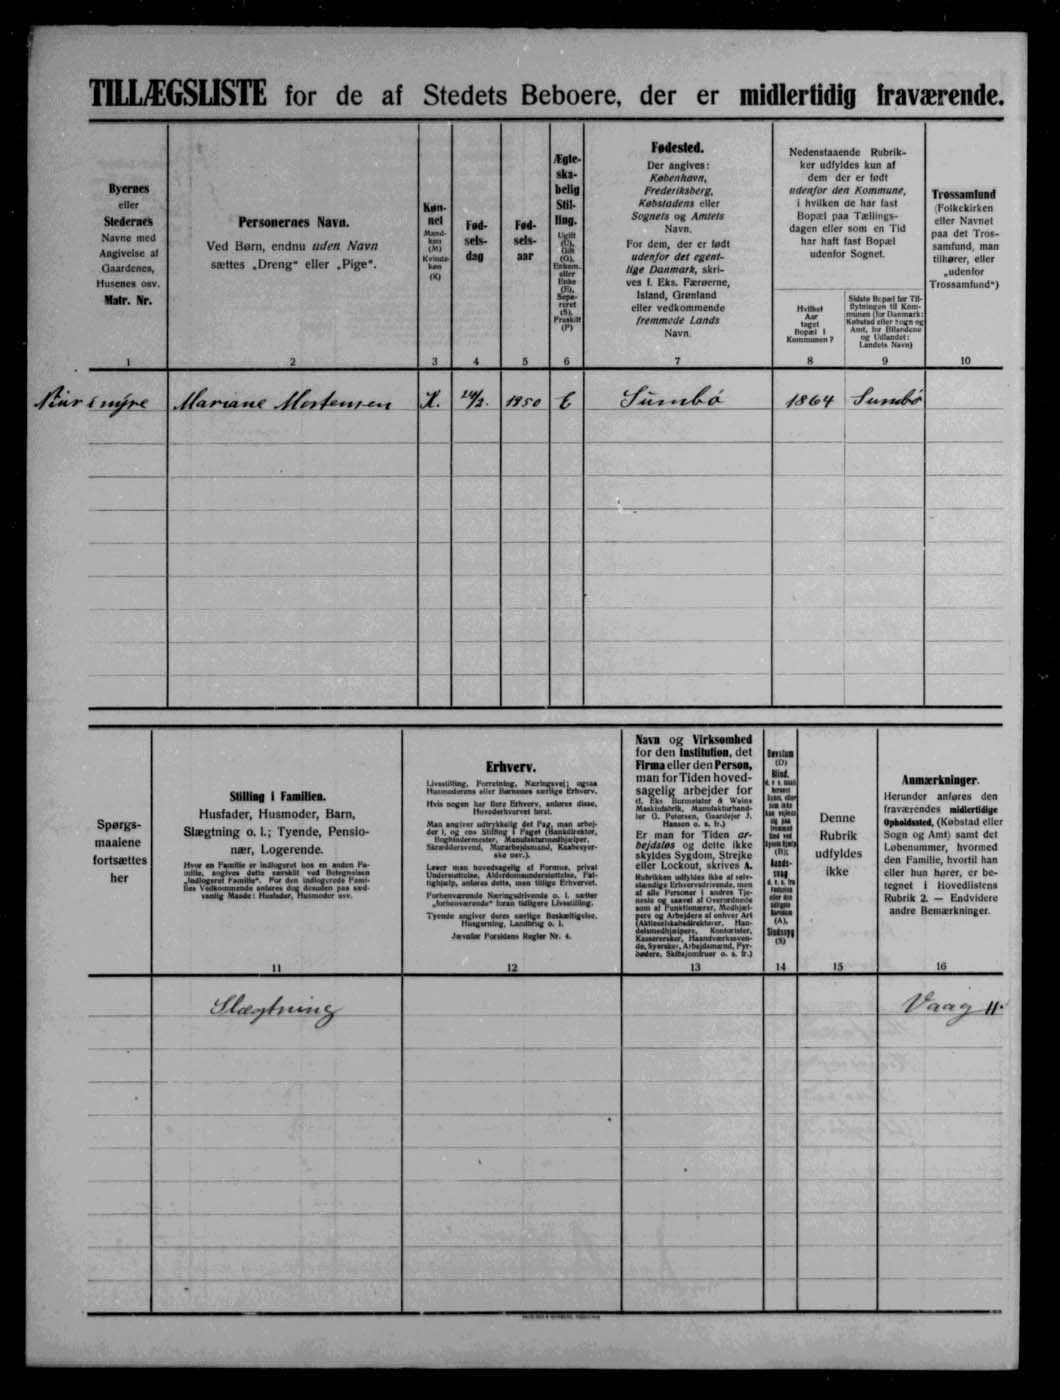 TILLÆGSLISTE for de af Stedets Beboere, der er midlertidig fraværende.
Byernes
eller
Stedernes
Navne med
Angivelse af
Gaardenes,
Husenes osv.
Matr. Nr.
1
Personernes Navn.
Ved Børn, endnu uden Navn
sættes „Dreng“ eller „Pige“.
2
Køn-
net
Mand-
køn
(M)
Kvinde-
køn
(K)
3
Fød-
sels-
dag
4
Fød-
sels-
aar
5
Ægte-
ska-
belig
Stil-
ling.
Ugift
(U),
Gift
(G),
Enkem.
eller
Enke
(E),
Sepa-
reret
(S),
Fraskilt
(F)
6
Fødested.
Der angives:
København,
Frederiksberg,
Købstadens eller
Sognets og Amtets
Navn.
For dem, der er født
udenfor det egent-
lige Danmark, skri-
ves f. Eks. Færøerne,
Island, Grønland
eller vedkommende
fremmede Lands
Navn.
7
Nedenstaaende Rubrik-
ker udfyldes kun af
dem der er født
udenfor den Kommune,
i hvilken de har fast
Bopæl paa Tællings-
dagen eller som en Tid
har haft fast Bopæl
udenfor Sognet.
Hvilket
Aar
taget
Bopæl i
Kommunen?
8
Sidste Bopæl før Til-
flytningen til Kom-
munen (for Danmark:
Købstad eller Sogn og
Amt, for Bilandene
og Udlandet:
Landets Navn)
9
Trossamfund
(Folkekirken
eller Navnet
paa det Tros-
samfund, man
tilhører, eller
„udenfor
Trossamfund“)
10
Mariane Mortensen K. 24/2. 1850 E Sumbø 1864 Sumbø
Spørgs-
maalene
fortsættes
her
Stilling i Familien.
Husfader, Husmoder, Barn,
Slægtning o. l.; Tyende, Pensio-
nær, Logerende.
Hvor en Familie er indlogeret hos en anden Fa-
milie, angives dette særskilt ved Betegnelsen
„indlogeret Familie“. For den indlogerede Fami-
lies Vedkommende anføres dog desuden paa sæd-
vanlig Maade: Husfader, Husmoder osv.
11
Erhverv.
Livsstilling, Forretning, Næringsvej; ogsaa
Husmoderens eller Børnenes særlige Erhverv.
Hvis nogen har flere Erhverv, anføres disse,
Hovederhvervet først.
Man angiver udtrykkelig det Fag, man arbej-
der i, og ens Stilling i Faget (Bankdirektør,
Bogbindermester, Manufakturmedhjælper,
Skræddersvend, Murarbejdsmand, Kaabesyer-
ske osv.).
Lever man hovedsagelig af Formue, privat
Understøttelse, Alderdomsunderstøttelse, Fat-
tighjælp, anføres dette, man tillige Erhvervet.
Forhenværende Næringsdrivende o. l. sætter
„forhenværende“ foran tidligere Livsstilling.
Tyende angiver deres særlige Beskæftigelse.
Husgerning, Landbrug o. l.
Jævnfør Forsidens Regler Nr. 4.
12
Navn og Virksomhed
for den Institution, det
Firma eller den Person,
man for Tiden hoved-
sagelig arbejder for
(f. Eks Burmeister & Wains
Maskinfabrik, Manufakturhand-
ler G. Petersen, Gaardejer J.
Hansen o. s. fr.)
Er man for Tiden ar-
bejdsløs og dette ikke
skyldes Sygdom, Strejke
eller Lockout, skrives A.
Rubrikken udfyldes ikke af selv-
stændige Erhvervsdrivende, men
af alle Personer i andres Tje-
neste og saavel af Overordnede
som af Funktionærer, Medhjæl-
pere og Arbejdere af enhver Art
(Aktieselskabsdirektører, Han-
delsmedhjælpere, Kontorister,
Kassererskør, Haandværkssven-
de, Syersker, Arbejdsmænd, Fyr-
bødere, Skibsjomfruer o. s. fr.)
13
Døvstum
(D)
Blind,
(B);
Aands-
svag
(A),
Sindssyg
(S)
14
Denne
Rubrik
udfyldes
ikke
15
Anmærkninger.
Herunder anføres den
fraværendes midlertidige
Opholdssted, (Købstad eller
Sogn og Amt) samt det
Løbenummer, hvormed
den Familie, hvortil han
eller hun hører, er be-
tegnet i Hovedlistens
Rubrik 2. — Endvidere
andre Bemærkninger.
16
Slægtning Vaag 11.